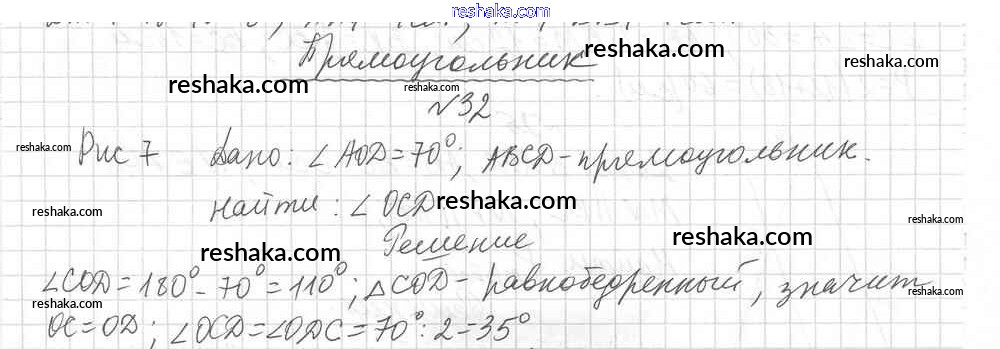 reshaka.com
reshaka.com
Прямоугольник
reshaka.com
reshaka.com
№32
reshaka.com
reshaka.com
Рис 7 Дано: ∠AOD = 70°; ABCD - прямоугольник.
reshaka.com
Найти: ∠OCD
reshaka.com
reshaka.com
reshaka.com
Решение
reshaka.com
reshaka.com
∠COD = 180° - 70° = 110°; △COD - равнобедренный, значит
reshaka.com
reshaka.com
reshaka.com
reshaka.com
OC = OD; ∠OCD = ∠ODC = 70° : 2 = 35°